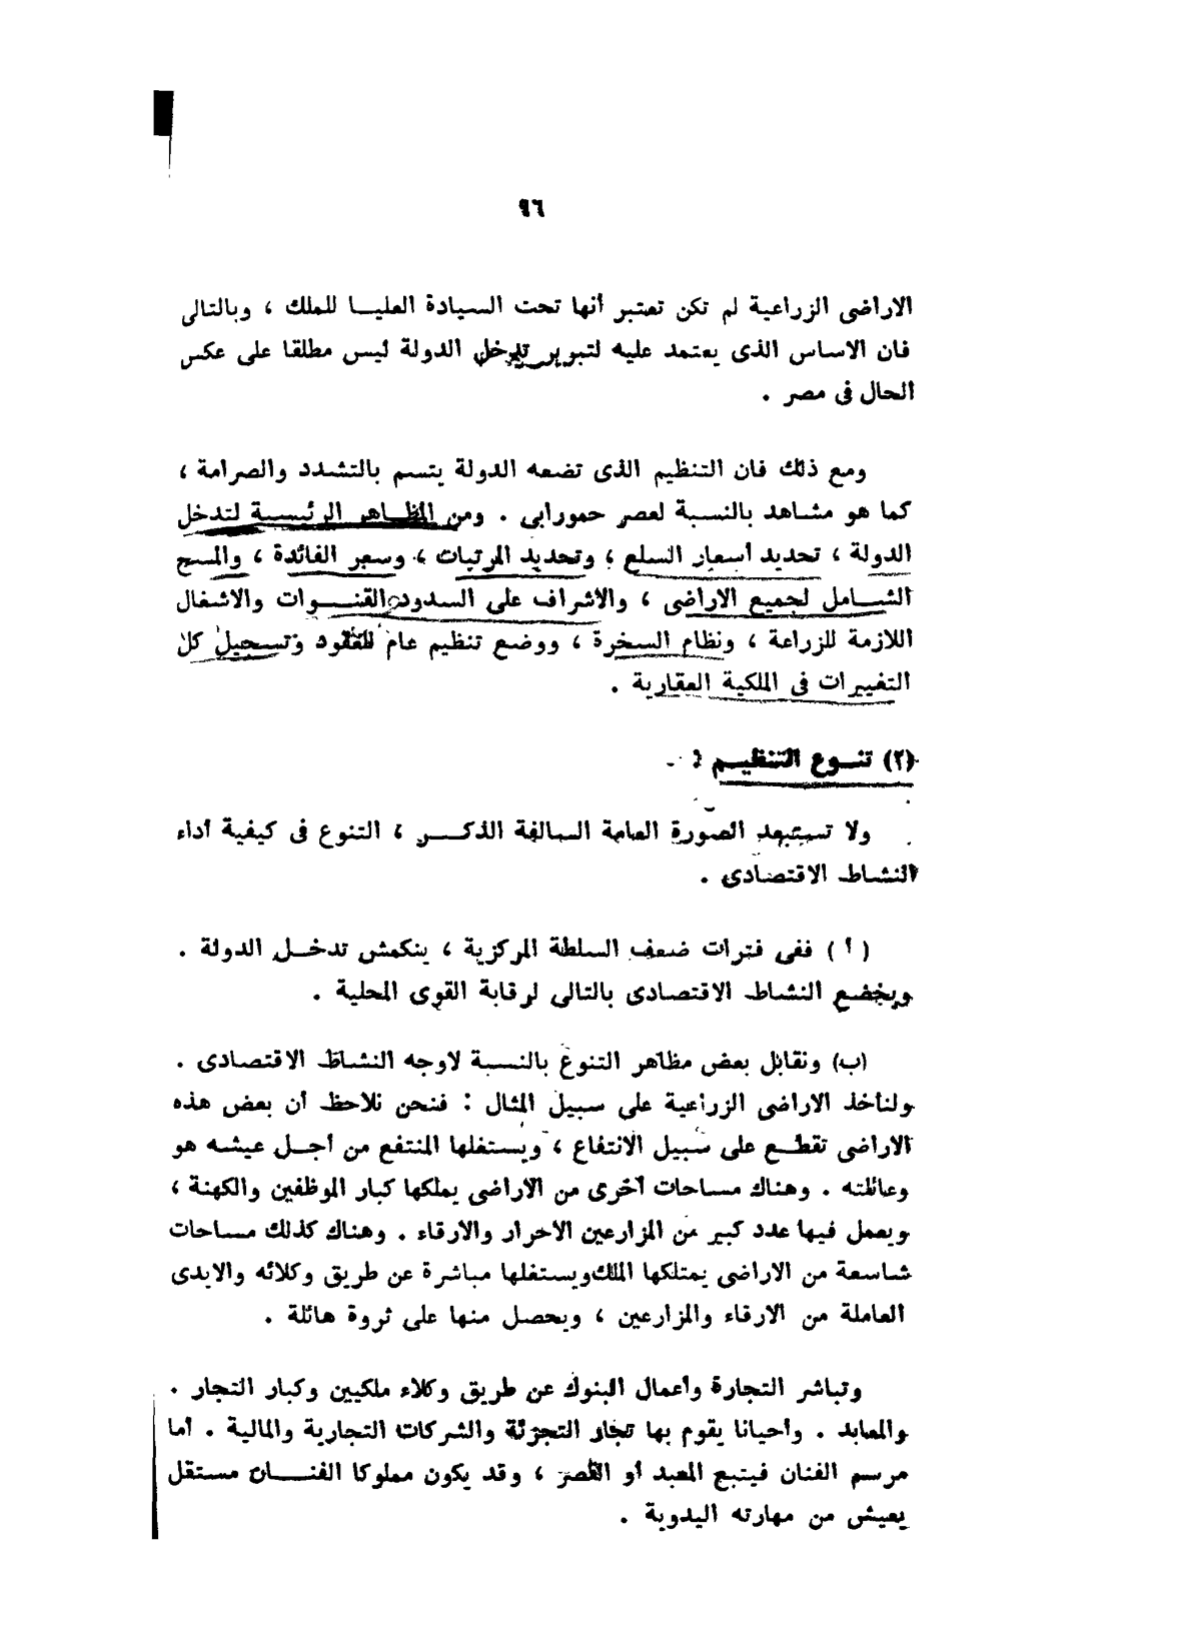 ٩٦
الاراضى الزراعية لم تكن تعتبر أنها تحت السيادة العليا للملك ، وبالتالى
فان الاساس الذى يعتمد عليه لتبرير تدخل الدولة ليس مطلقا على عكس
الحال فى مصر .
ومع ذلك فان التنظيم الذى تضعه الدولة يتسم بالتشدد والصرامة ،
كما هو مشاهد بالنسبة لعصر حمورابى . ومن المظاهر الرئيسية لتدخل
الدولة ، تحديد أسعار السلع ، وتحديد المرتبات ، وسعر الفائدة ، والمسح
الشامل لجميع الاراضى ، والاشراف على السدود والقنوات والاشغال
اللازمة للزراعة ، ونظام السخرة ، ووضع تنظيم عام للعقود وتسجيل كل
التغييرات فى الملكية العقارية .
(٢) تنوع التنظيم : -
ولا تستبعد الصورة العامة السالفة الذكر ، التنوع فى كيفية أداء
النشاط الاقتصادى .
( أ ) ففى فترات ضعف السلطة المركزية ، ينكمش تدخل الدولة .
ويخضع النشاط الاقتصادى بالتالى لرقابة القوى المحلية .
(ب) ونقابل بعض مظاهر التنوع بالنسبة لاوجه النشاط الاقتصادى .
ولنأخذ الاراضى الزراعية على سبيل المثال : فنحن نلاحظ أن بعض هذه
الاراضى تقطع على سبيل الانتفاع ، ويستغلها المنتفع من أجل عيشه هو
وعائلته . وهناك مساحات أخرى من الاراضى يملكها كبار الموظفين والكهنة ،
ويعمل فيها عدد كبير من المزارعين الاحرار والارقاء . وهناك كذلك مساحات
شاسعة من الاراضى يمتلكها الملك ويستغلها مباشرة عن طريق وكلائه والايدى
العاملة من الارقاء والمزارعين ، ويحصل منها على ثروة هائلة .
وتباشر التجارة وأعمال البنوك عن طريق وكلاء ملكيين وكبار التجار .
والمعابد . وأحيانا يقوم بها تجار التجزئة والشركات التجارية والمالية . أما
مرسم الفنان فيتبع المعبد أو القصر ، وقد يكون مملوكا الفنان مستقل
يعيش من مهارته اليدوية .